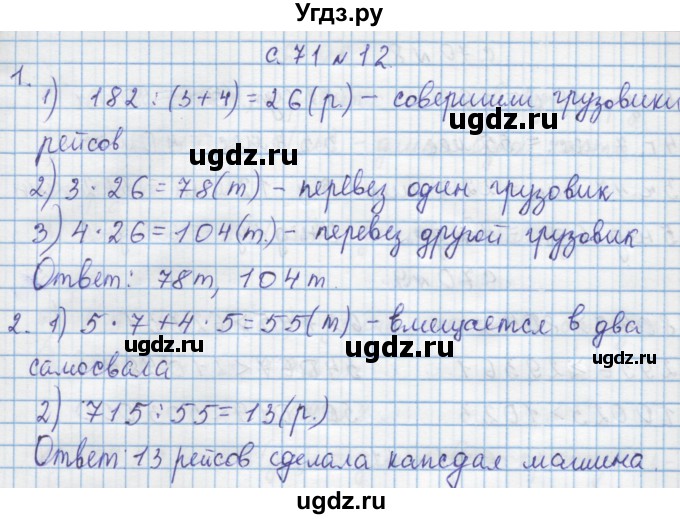 Угдз.ру
с. 71 № 12.
1.
1) 182 : (3+4) = 26 (р.) – совершили грузовики
рейсов
2) 3 · 26 = 78 (т) – перевез один грузовик
3) 4 · 26 = 104 (т.) – перевез другой грузовик
Ответ: 78 т, 104 т.
2. 1) 5 · 7 + 4 · 5 = 55 (т) – вмещается в два
самосвала
2) 715 : 55 = 13 (р.)
Ответ: 13 рейсов сделала каждая машина.
угдз.ru
угдз.ru
угдз.ru
угдз.ru
угдз.ru
угдз.ru
угдз.ru